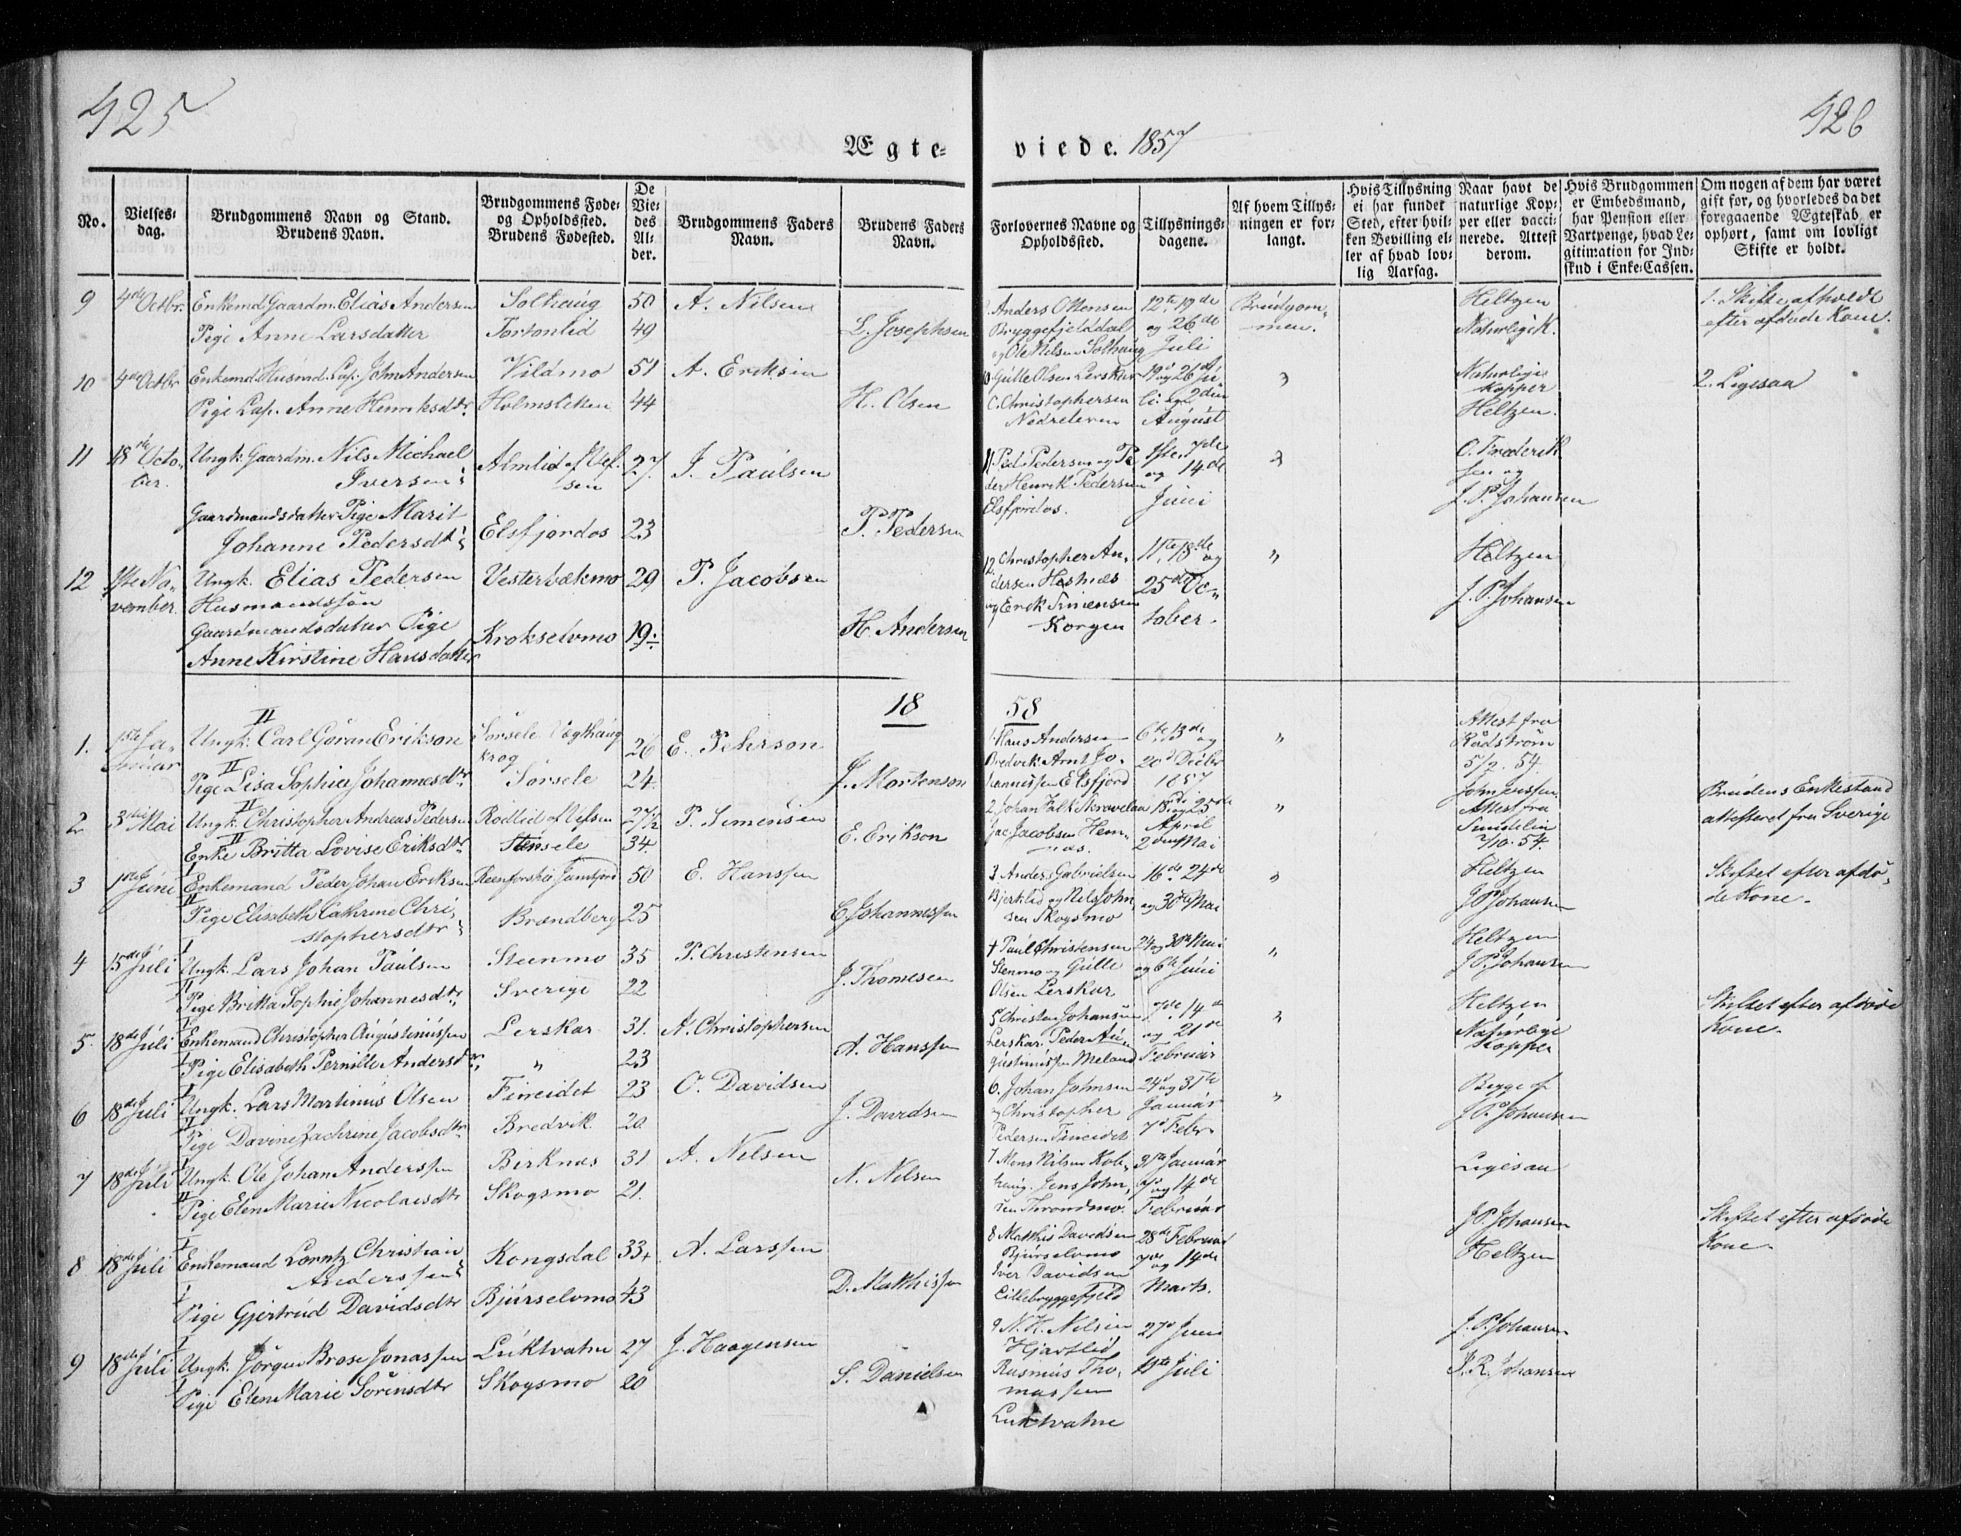 425
426
Ægteviede. 1857
No.
Vielsesdag.
Brudgommens Navn og Stand. Brudens Navn.
Brudgommens Føde- og Opholdssted. Brudens Fødested.
De Viedes Alder.
Brudgommens Faders Navn.
Brudens Faders Navn.
Forlovernes Navne og Opholdssted.
Tillysningsdagene.
Af hvem Tillysningen er forlangt.
Hvis Tillysning ei har fundet Sted, efter hvilken Bevilling eller af hvad lovlig Aarsag.
Naar havt de naturlige Kopper eller vaccinerede. Attest derom.
Hvis Brudgommen er Embedsmand, har Pension eller Vartpenge, hvad Legitimation for Indskud i Enke-Cassen.
Om nogen af dem har været gift før, og hvorledes da det foregaaende Ægteskab er ophørt, samt om lovligt Skifte er holdt.
9 4de Octbr. Enkemd. Gaardm. Elias Andersen Solhaug 50 A. Nilsen Anders Ottensen 12te, 19de Brudgom- Heltzen 1. Skifte afholdt
Pige Anne Larsdatter Tortenlid 49 L. Josephsen Bryggefjelddal og 26de men. Naturlige K. efter afdøde Kone.
og Ole Nilsen Solhaug Juli
10 4de Octbr Enkemd. Husmd. Lap. John Andersen Vildmo 51 A. Eriksen Gulle Olsen Lerskar 19de og 26de Ju- " Naturlige Kopper 2. Ligesaa
Pige Lap. Anne Henriksdtr. Holmslien 44 H. Olsen C. Christophersen li og 2den Heltzen.
August
11 18de October. Ungk. Gaardm. Nils Michael Almlid af Vef- 27 I. Paulsen Ped. Pedersen og Pe- 1ste, 7de " O. Frederik-
Iversen sen der Henrik Pedersen og 14de sen og
Gaardmandsdatter Pige Marit Elsfjordos. Juni J. P. Johansen
Johanne Pedersdtr. Elsfjordos 23 P. Pedersen
12 1ste November. Ungk. Elias Pedersen Vesterbækmo 29 P. Jacobsen 12 Christopher An- 11te, 18de og " Heltzen
Husmandssøn dersen Hesnæs 25de Oc- J. P. Johansen
Gaardmandsdatter Pige og Erik Simensen tober.
Anne Kirstine Hansdatter Krokselvmo 19 H. Andersen Korgen
18 58
1. 1ste Januar Ungk. Carl Gøran Erikson Sørsele 26 E. Pehrson 1 Hans Andersen 6te 13de og " Attest fra
Bredvik Arnt Jo- 20de Decbr Rådstrøm
Pige Lisa Sophia Johannesdtr Sørsele 24 J. Mortenson hannessen Elsfjord 1857 5/9. 54.
2 3die Mai Ungk. Christopher Andreas Pedersen Rødlid af Vefsen 27½ P. Simensen 2. Johan Falk Skravelaa 18de og 25de " Brudens Enkestand
Enke Britta Lovise Eriksdtr. Stensele 34. E. Erikson Jac. Jacobsen Hem- April Attest fra attesteret fra Sverige
næs. 2den Mai Sundelin 2/10. 54.
3 1ste Juni Enkemand Peder Johan Eriksen 50 E. Hanssen 3 Anders Gabrielsen 16de 24de " Heltzen Skiftet efter afdø-
Pige Elisabeth Cathrine Chri- Brandberg 25 C. Johannessen Bjerklid og Nils John- og 30te Mai J. P. Johansen de Kone.
stophersdtr. sen Skogsmo
4 15de Juli Ungk. Lars Johan Paulsen Steenmo 35 P. Christensen 4 Paul Christensen 24 og 30te Mai " Heltzen
Pige Britta Sophie Johannesdtr. Sverige 22 J. Thomesen Stenmo og Gulle og 6te Juni J. P. Johansen
Olsen Lerskar
5 18de Juli Enkemand Christopher Augustinussen Lerskar 31. A. Christophersen 5 Christen Johansen 7de, 14 " Heltzen Skiftet efter afdøde
Pige Elisabeth Pernille Andersdtr. " 23 A. Hanssen Lerskar. Peder Au- og 21de Naturlige Kopper Kone.
gustinussen Meland Februar
6 18de Juli Ungk. Lars Martinus Olsen Fineidet 23 O. Davidsen 6. Johan Johnsen 24de og 31te " Begge af
Pige Davine Zachrine Jacobsdtr. Bredvik 20 J. Davidsen og Christopher Januar J. P. Johansen
Pedersen Fineidet 7de Febr.
7 18de Juli Ungk. Ole Johan Anderssen Birknæs 31 A. Nelsen 7 Mons Nilsen Kob- 31te Januar Ligesaa
Pige Elen Marie Nicolaisdtr Skogsmo 21. N. Nelsen haug. Jens John- 7de og 14de
sen Throndmo. Februar
8 18de Juli Enkemand Lorntz Christian Kongsdal 33 A. Larssen 8 Mathis Davidsen 28de Februar J. P. Johansen Skiftet efter afdøde
Anderssen Bjurselvmo 7de og 14de Heltzen Kone.
Pige Gjertrud Davidsdtr Bjurselvmo 43 D. Mathissen Iver Davidsen Marts.
Lillebryggefjeld
9 18de Juli Ungk. Jørgen Brose Jonassen Luktvatne 27 J. Haagensen 9 N. H. Nilsen 27de Juni J. P. Johansen
Pige Elen Marie Sørensdtr Skogsmo 20 S. Danielsen Hjartlid Juli Johansen
Rasmus Tho-
massen
Luktvatne